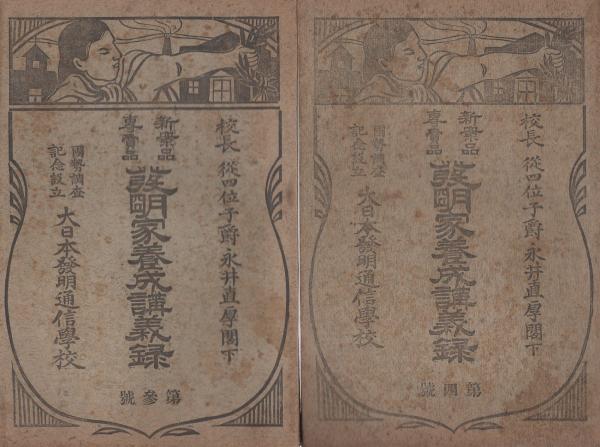 校長 從四位子爵 永井直厚閣下
新案品
專賣品
發明家養成講義録
國勢調査
記念設立
大日本發明通信學校
第參號
校長 從四位子爵 永井直厚閣下
新案品
專賣品
發明家養成講義録
國勢調査
記念設立
大日本發明通信學校
第四號